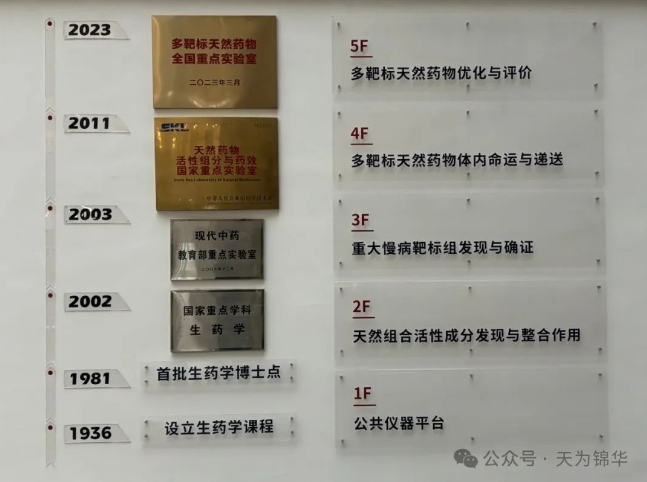 2023
多靶标天然药物
全国重点实验室
二〇二三年三月
2011
SKL
天然药物
活性组分与药效
国家重点实验室
2003
现代中药
教育部重点实验室
2002
国家重点学科
生药学
1981
首批生药学博士点
1936
设立生药学课程
5F
多靶标天然药物优化与评价
4F
多靶标天然药物体内命运与递送
3F
重大慢病靶标组发现与确证
2F
天然组合活性成分发现与整合作用
1F
公共仪器平台
公众号·天为锦华